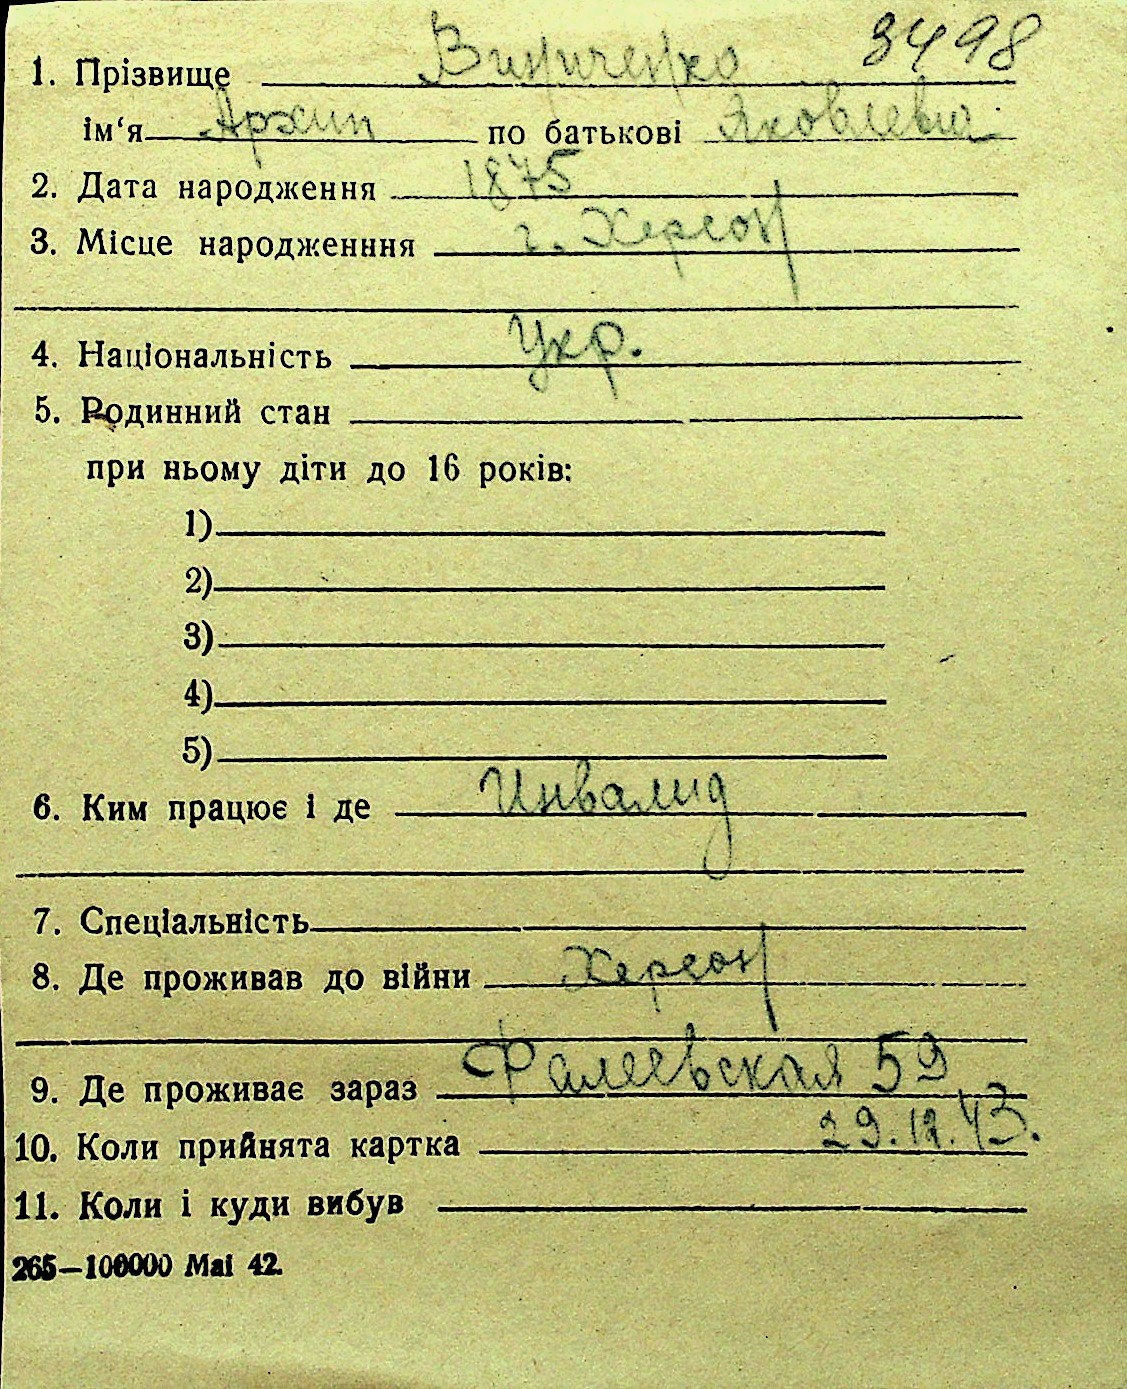 3498
1. Прізвище Винниченко
ім‘я Архип по батькові Яковлевич
2. Дата народження 1875
3. Місце народженння г. Херсон
4. Національність Укр.
5. Родинний стан
при ньому діти до 16 років:
1)
2)
3)
4)
5)
6. Ким працює і де Инвалид
7. Спеціальність
8. Де проживав до війни Херсон
9. Де проживає зараз Фалеевская 59
10. Коли прийнята картка 29.12.43.
11. Коли і куди вибув
265—100000 Mai 42.